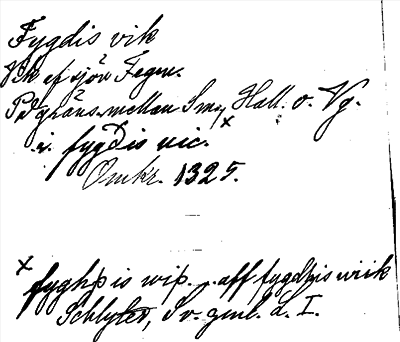 Fygdis vik
Vik af sjön Fegen.
På gräns. mellan Sm., Hall. o. Vg.
i. fygðis uic. x
Omkr. 1325.
x fyghþis wiþ. . aff fygdþis wiik
Schlyter, Sv. gml. L. I.